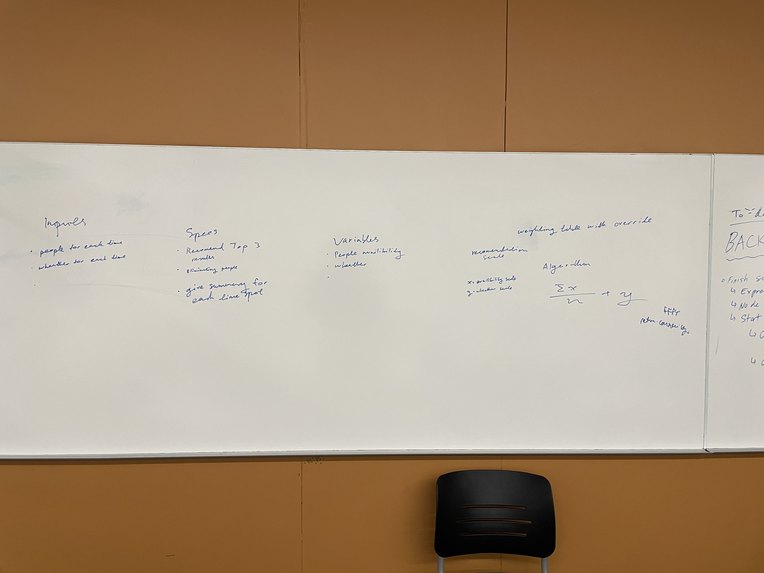 Inputs
· people for each time
· whether for each time
·
Specs
· Recomend Top 3
results
· eliminating people
· give summary for
each time spot
Variables
· People availibility
· wheather
·
weighting table with override
recomendation
scale
Algorithm
x: availibility scale
y: weather scale
Σx
n
+ y
To-do
BACK
Finish s
↳ Expre
↳ Node
↳ Start
↳
↳